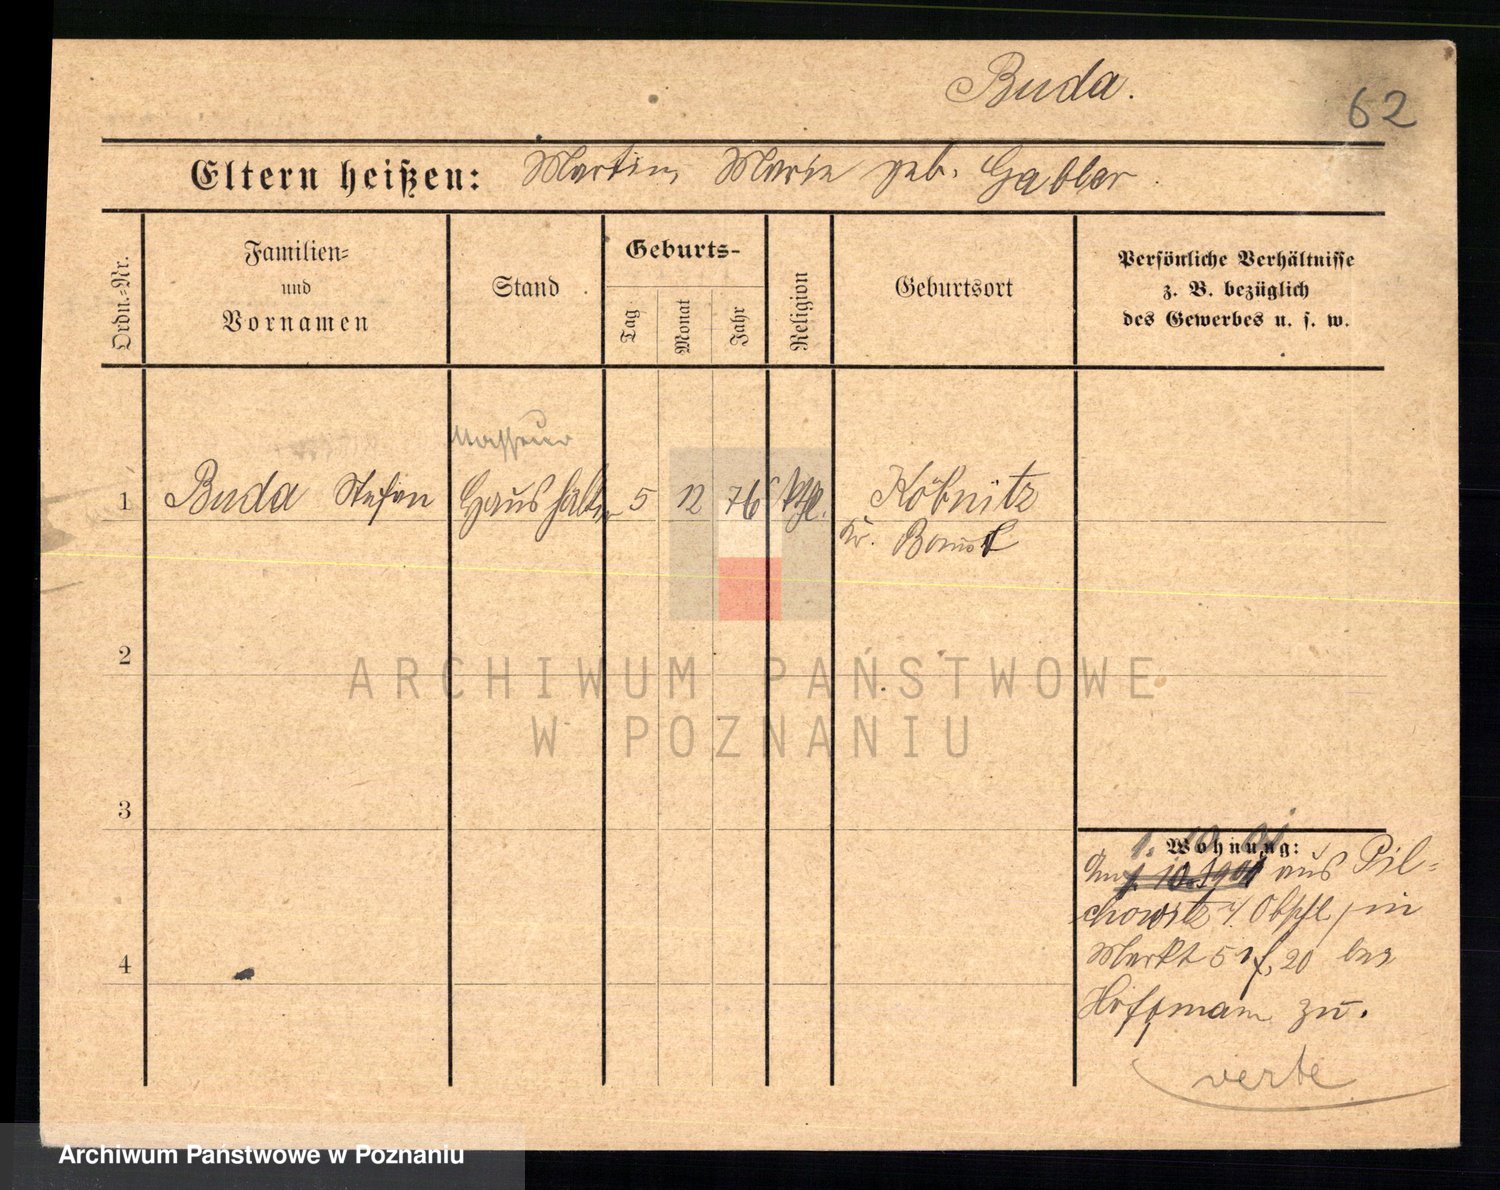 Buda.
62
Eltern heißen: Martin, Marie geb. Gabler.
Ordn.-Nr.
Familien-
und
Vornamen
Stand
Geburts-
Tag
Monat
Jahr
Religion
Geburtsort
Persönliche Verhältnisse
z. B. bezüglich
des Gewerbes u. s. w.
Masseur
1 Buda Stefan Haushälter 5 12 76 kthl. Köbnitz
Kr. Bomst
2
ARCHIWUM PAŃSTWOWE
W POZNANIU
3
1. 10. 01
Wohnung:
Am 1. 10. 1901 aus Pil-
chowitz /Obschl. in
Markt 51 f. 20 bei
Hoffmann zu.
4
verte
Archiwum Państwowe w Poznaniu